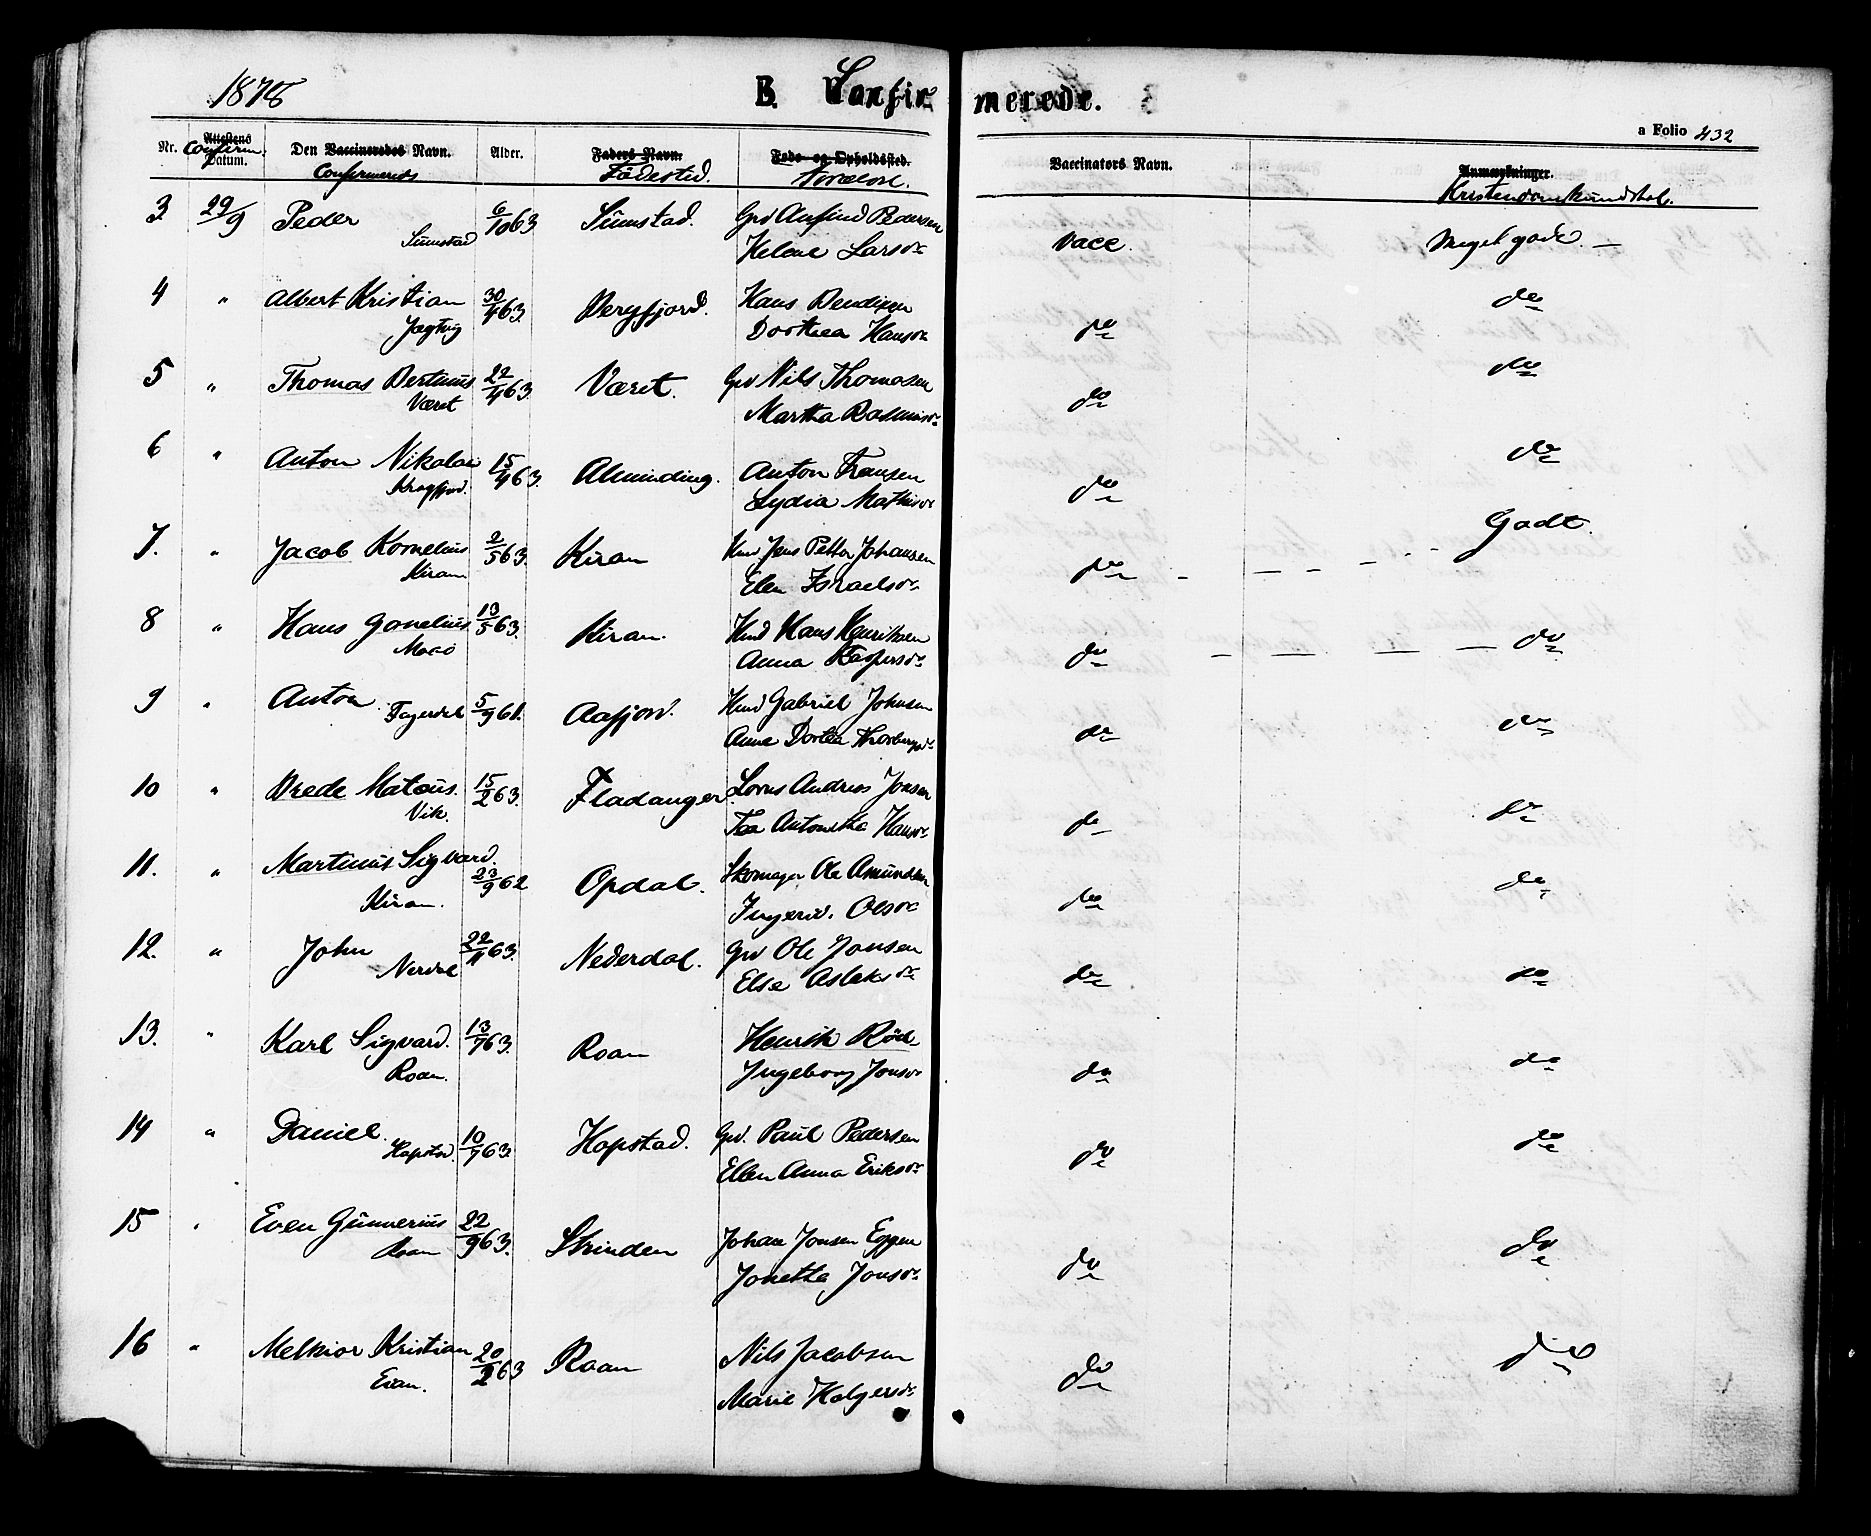 1878 B. Confirmerede.
a Folio 432
Nr. Attestens Datum. Den Vaccineredes Navn. Alder. Faders Navn. Føde- og Opholdssted. Vaccinators Navn. Anmærkninger.
Confirm. Confirmereds Fødested. Forældre. Kristendomskundskab.
3 29/9 Peder 6/10 63 Sumstad. Grd Anfind Pedersen vacc. Meget godt. —
Sumstad Helene Larsdr
4 " Albert Kristian 30/4 63. Bergfjord. Hans Bendixen do do
Jægtvig Dorthea Hansdr
5 " Thomas Bertinus 22/4 63. Været. Grd Nils Thomasen do do
Været Martha Rasmusdr
6 " Anton Nikolai 15/4 63. Alminding. Anton Fransen do do
Kragfjord. Lydia Mathisdr
7. " Jacob Kornelius 2/5 63. Kiran Hmd Jens Petter Johansen do Godt.
Kiran Elen Israelsdr
8 " Hans Gornelius 13/5 63. Kiran. Hmd Hans Henriksen do do
Anna Kaspersdr
9 " Anton 5/9 61. Aafjord. Hmd Gabriel Johnsen do do
Fagerdal Anne Dortea
10 " Brede Mateus. 15/2 63. Fladanger. Andreas Jonsen do do
Vik. Antonetta Hansdr
11. " Martinus Sigvard. 23/9 62 Opdal. Skomager Ole Amundsen do do
Kiran. Ingerid. Olsdr
12. " John 22/11 63. Nederdal. Grd Ole Jonsen do do
Nerdal Else Aslaksdr
13. " Karl Sigvard. 13/7 63. Roan Henrik Röd do do
Roan. Ingeborg Jonsdr
14 " Daniel. 10/7 63. Hopstad. Grd. Paul Pedersen do do
Hopstad. Ellen Anna Eriksdr
15 " Even Gunnerius 22/9 63. Strinden Johan Jonsen Eggen do do
Roan Jonetta Jonsdr
16 " Melkior Kristian 20/2 63 Roan Nils Jacobsen do do
Evan. Marie Holgersdr